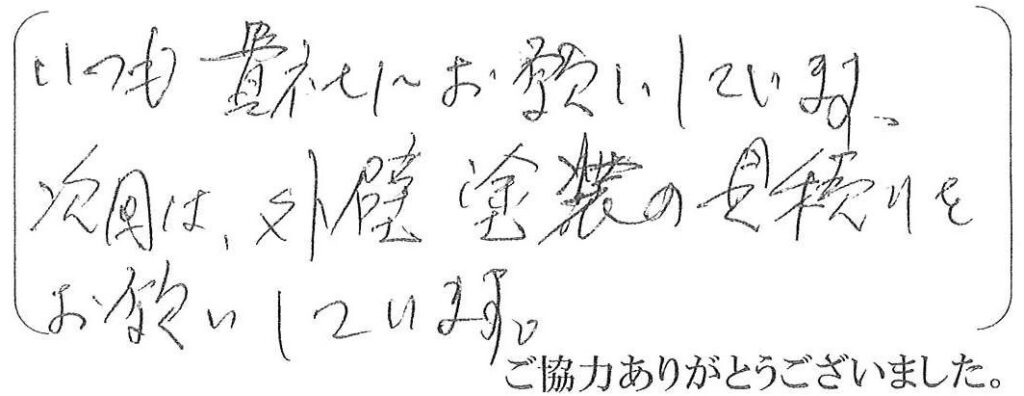 いつも貴社にお願いしています、
次回は、外壁塗装の見積りを
お願いしています。
ご協力ありがとうございました。